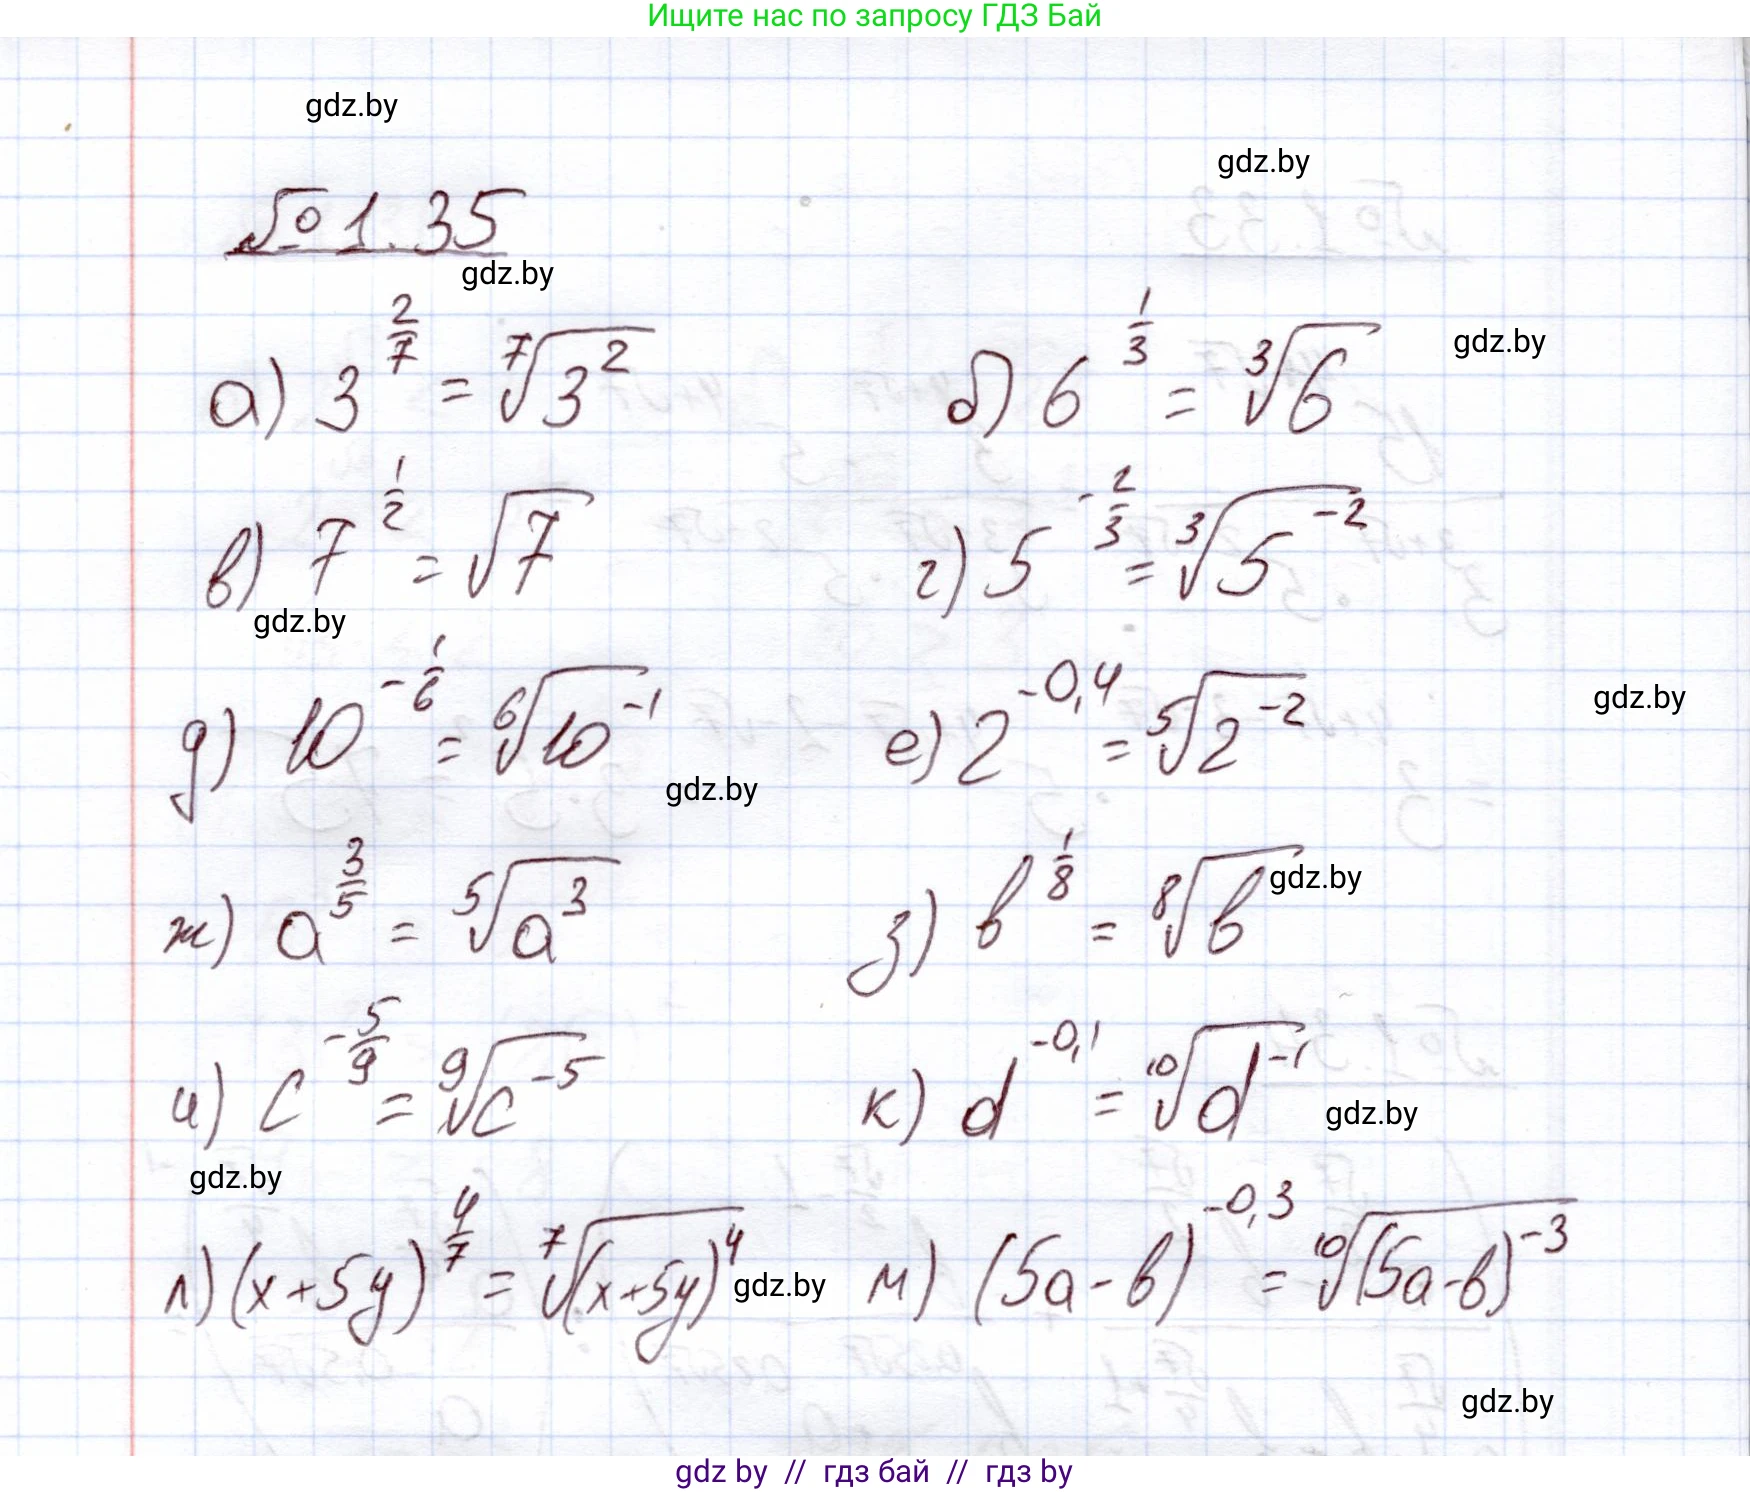 Ищите нас по запросу ГДЗ Бай
gdz.by
gdz.by
№ 1.35
gdz.by
а) 3^{2/7} = ⁷√(3²)
б) 6^{1/3} = ³√6
gdz.by
в) 7^{1/2} = √7
г) 5^{-2/3} = ³√(5^{-2})
gdz.by
д) 10^{-1/6} = ⁶√(10^{-1})
е) 2^{-0,4} = ⁵√(2^{-2})
gdz.by
gdz.by
ж) a^{3/5} = ⁵√(a³)
з) b^{1/8} = ⁸√b
gdz.by
и) c^{-5/9} = ⁹√(c^{-5})
к) d^{-0,1} = ¹⁰√(d^{-1})
gdz.by
gdz.by
л) (x+5y)^{4/7} = ⁷√((x+5y)⁴)
gdz.by
м) (5a-b)^{-0,3} = ¹⁰√((5a-b)^{-3})
gdz.by
gdz by // гдз бай // гдз by